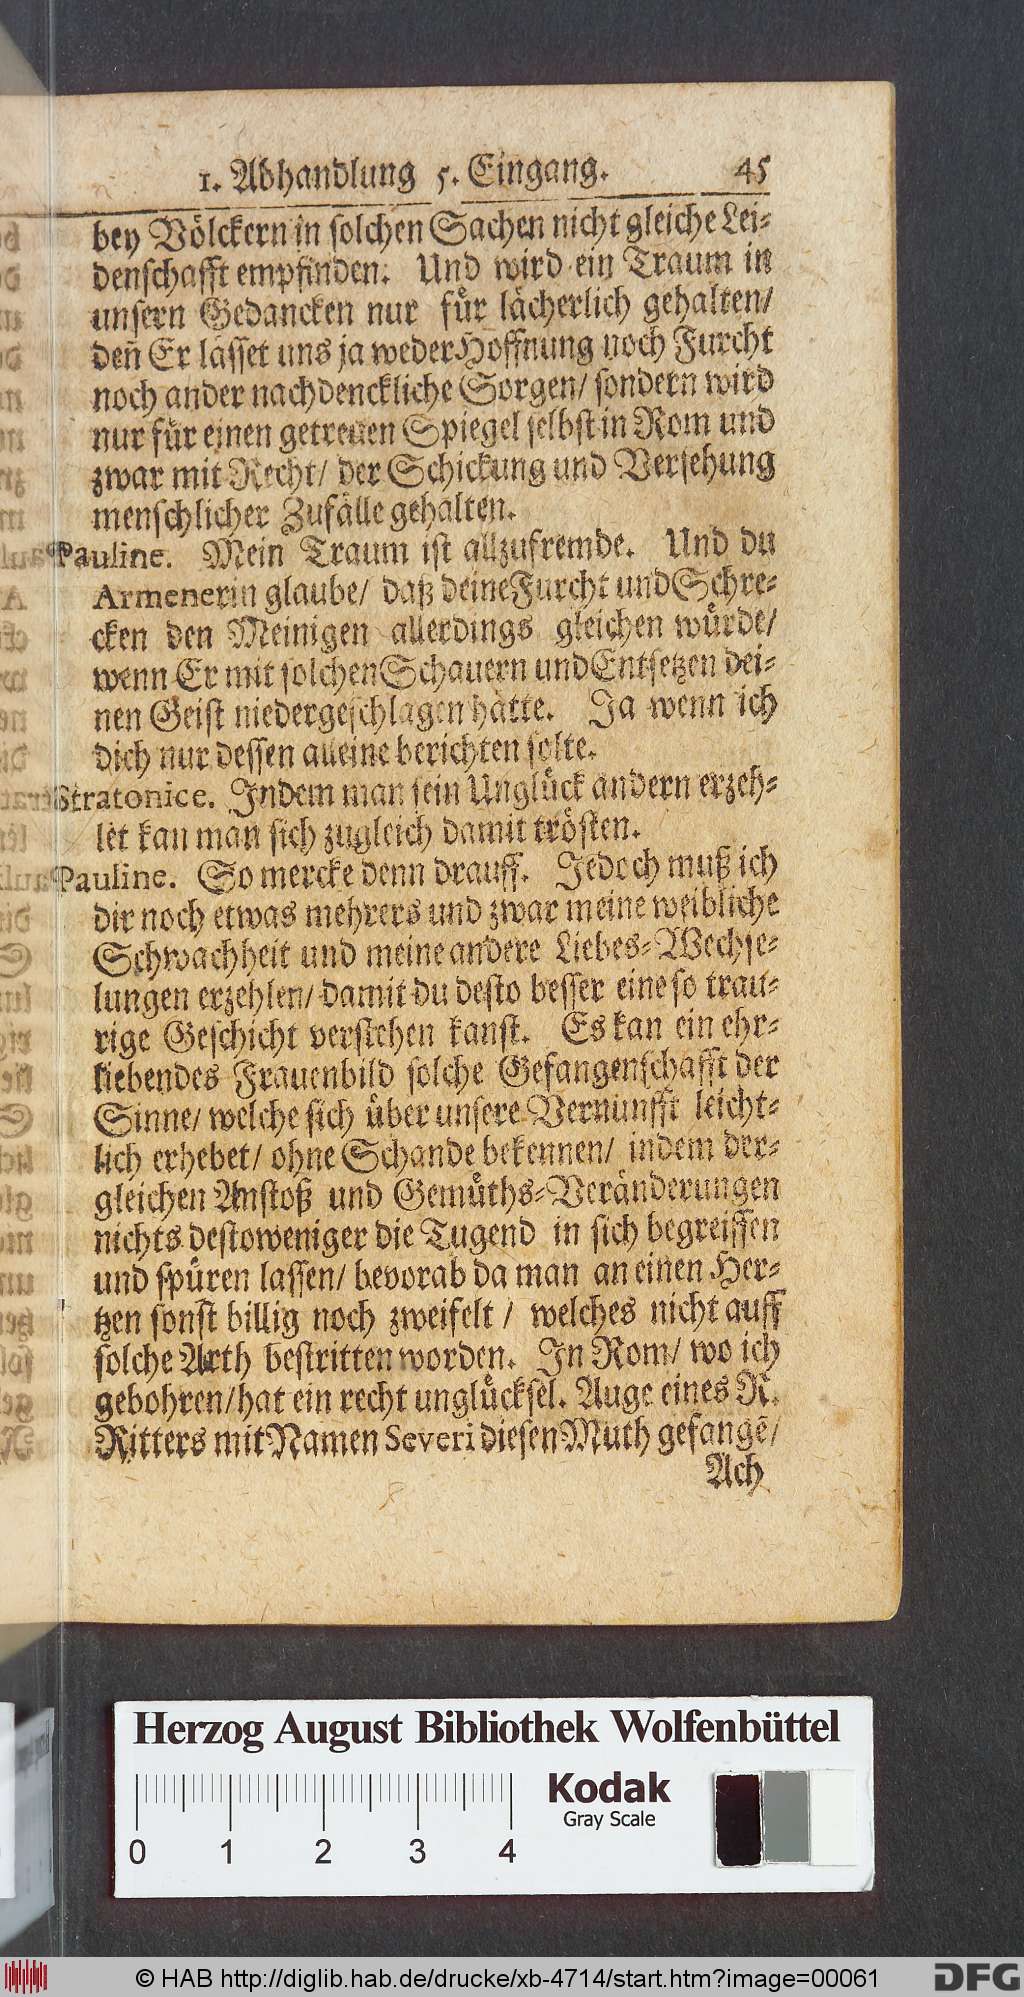 1. Abhandlung 5. Eingang. 45
bey Völckern in solchen Sachen nicht gleiche Lei-
denschafft empfinden. Und wird ein Traum in
unsern Gedancken nur für lächerlich gehalten/
deñ Er lässet uns ja weder Hoffnung noch Furcht
noch ander nachdenckliche Sorgen/ sondern wird
nur für einen getreuen Spiegel selbst in Rom und
zwar mit Recht/ der Schickung und Versehung
menschlicher Zufälle gehalten.
Pauline. Mein Traum ist allzufremde. Und du
Armenerin glaube/ daß deine Furcht und Schre-
cken den Meinigen allerdings gleichen würde/
wenn Er mit solchen Schauern und Entsetzen dei-
nen Geist niedergeschlagen hätte. Ja wenn ich
dich nur dessen alleine berichten solte.
Stratonice. Indem man sein Unglück andern erzeh-
let kan man sich zugleich damit trösten.
Pauline. So mercke denn drauff. Jedoch muß ich
dir noch etwas mehrers und zwar meine weibliche
Schwachheit und meine andere Liebes-Wechse-
lungen erzehlen/ damit du desto besser eine so trau-
rige Geschicht verstehen kanst. Es kan ein ehr-
liebendes Frauenbild solche Gefangenschafft der
Sinne/ welche sich über unsere Vernunfft leicht-
lich erhebet/ ohne Schande bekennen/ indem der-
gleichen Anstoß und Gemüths-Veränderungen
nichts destoweniger die Tugend in sich begreiffen
und spüren lassen/ bevorab da man an einen Her-
tzen sonst billig noch zweifelt / welches nicht auff
solche Arth bestritten worden. In Rom/ wo ich
gebohren/ hat ein recht unglücksel. Auge eines R.
Ritters mit Namen Severi diesen Muth gefangẽ/
Ach
Herzog August Bibliothek Wolfenbüttel
Kodak
Gray Scale
0 1 2 3 4
© HAB http://diglib.hab.de/drucke/xb-4714/start.htm?image=00061
DFG